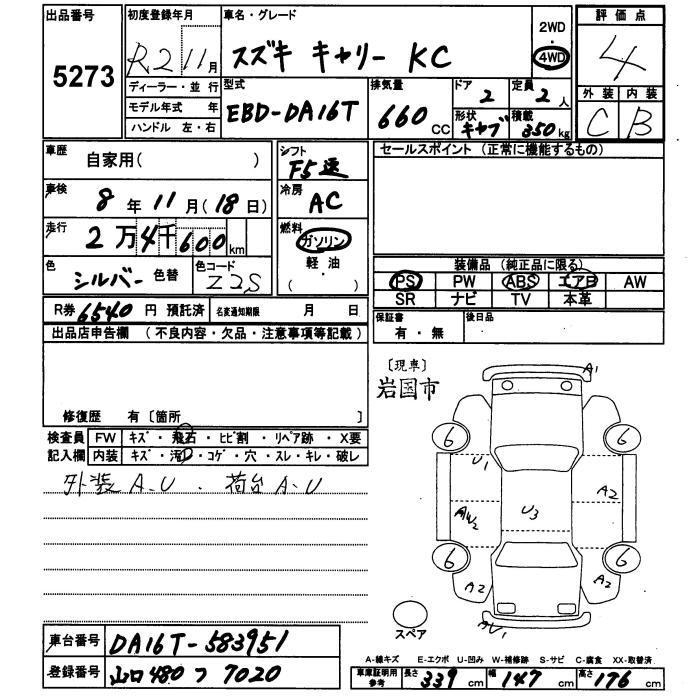 出品番号
5273
初度登録年月
R2 11月
ディーラー・並 行
モデル年式 年
ハンドル 左・右
車名・グレード
スズキ キャリー KC
2WD
・
4WD
評価点
4
外装 内装
C B
型式
EBD-DA16T
排気量
660cc
ドア
2
定員
2人
形状
キャブ
積載
350kg
車歴
自家用( )
車検
8年 11月(18日)
走行
2万4千600km
色
シルバー 色替
色コード
Z2S
シフト
F5速
冷房
AC
燃料
ガソリン
軽・油
( )
セールスポイント (正常に機能するもの)
装備品 (純正品に限る)
PS PW ABS エアB AW
SR ナビ TV 本革
R券 6540円 預託済 名変通知期限 月 日
保証書
有・無
後日品
出品店申告欄 (不良内容・欠品・注意事項等記載)
修復歴 有〔箇所 〕
検査員 FW キズ・飛石・ヒビ割・リペア跡・X要
記入欄 内装 キズ・汚・コゲ・穴・スレ・キレ・破レ
外装 A.U . 荷台 A.U
〔現車〕
岩国市
A1
6
6
U1
A2
AW2
U3
6
6
A2
A2
AU1
スペア
車台番号 DA16T-583951
登録番号 山口 480 つ 7020
A-線キズ E-エクボ U-凹み W-補修跡 S-サビ C-腐食 XX-取替済
車庫証明用参考 長さ 339cm 幅 147cm 高さ 176cm